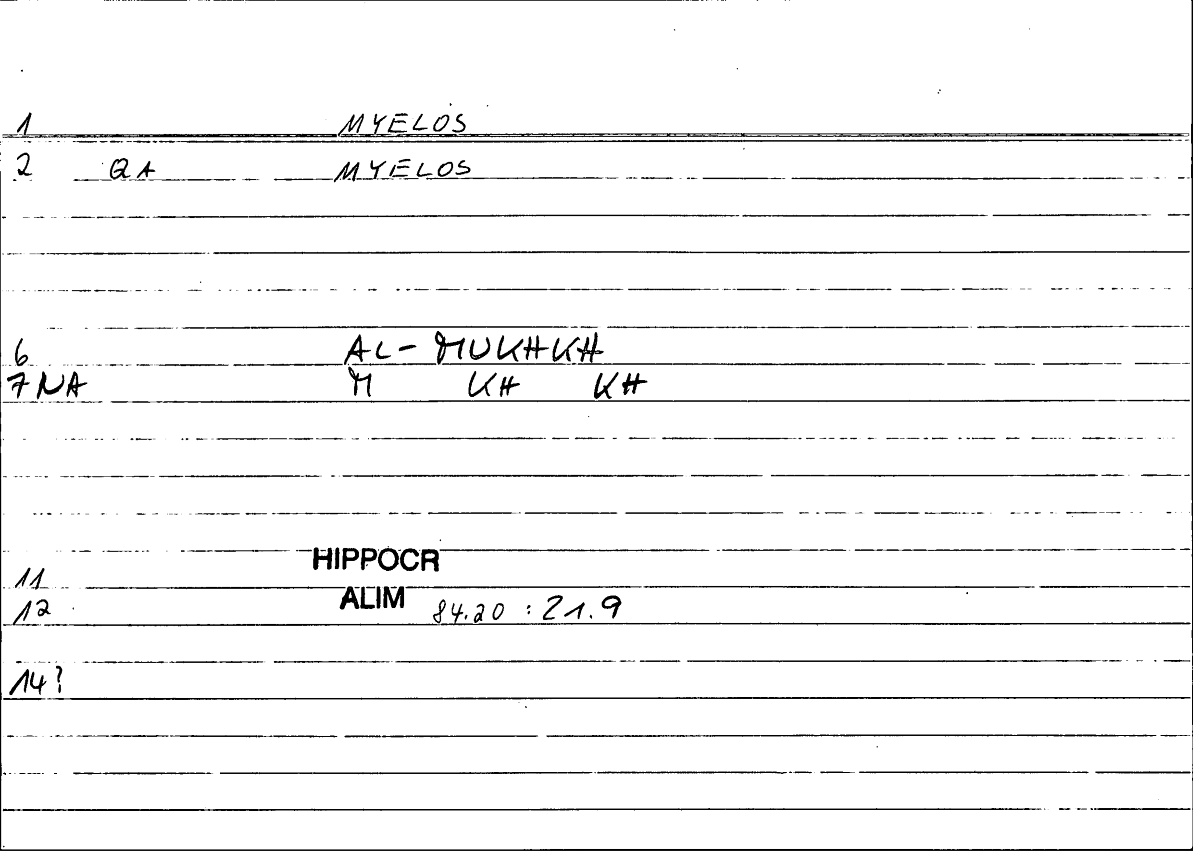 1 MYELOS
2 QA MYELOS
6 AL- MUKHKH
7 NA M KH KH
11 HIPPOCR
12 ALIM 84.20 : 21.9
14?